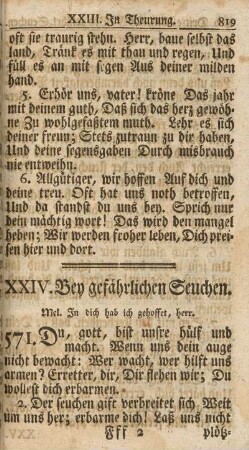 XXIII. In Theurung. 819
oft sie traurig stehn. Herr, baue selbst das
land, Tränk es mit thau und regen, Und
füll es an mit segen Aus deiner milden
hand.
5. Erhör uns, vater! kröne Das jahr
mit deinem guth, Daß sich das herz gewöh-
ne Zu wohlgefaßtem muth. Lehr es sich
deiner freun; Stets zutraun zu dir haben,
Und deine segensgaben Durch misbrauch
nie entweihn.
6. Allgütiger, wir hoffen Auf dich und
deine treu. Oft hat uns noth betroffen,
Und da standst du uns bey. Sprich nur
dein mächtig wort! Das wird den mangel
heben; Wir werden froher leben, Dich prei-
sen hier und dort.
XXIV. Bey gefährlichen Seuchen.
Mel. In dich hab ich gehoffet, herr.
571. Du, gott, bist unsre hülf und
macht. Wenn uns dein auge
nicht bewacht: Wer wacht, wer hilft uns
armen? Erretter, dir, Dir flehen wir; Du
wollest dich erbarmen.
2. Der seuchen gift verbreitet sich, Weit
um uns her; erbarme dich! Laß uns nicht
Fff 2 plötz-